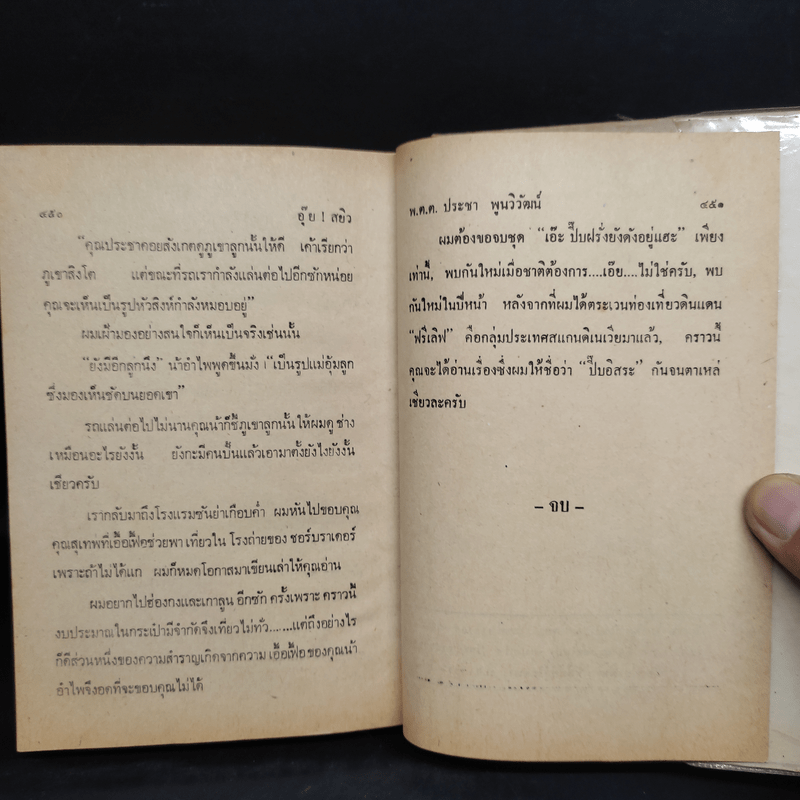 ๔๕๐
อุ๊ย ! สยิว
“คุณประชาคอยสังเกตดูภูเขาลูกนั้นให้ดี เค้าเรียกว่า
ภูเขาสิงโต แต่ขณะที่รถเรากำลังแล่นต่อไปอีกซักหน่อย
คุณจะเห็นเป็นรูปหัวสิงห์กำลังหมอบอยู่”
ผมเฝ้ามองอย่างสนใจก็เห็นเป็นจริงเช่นนั้น
“ยังมีอีกลูกนึง” น้าอำไพพูดขึ้นมั่ง “เป็นรูปแม่อุ้มลูก
ซึ่งมองเห็นชัดบนยอดเขา”
รถแล่นต่อไปไม่นานคุณน้าก็ชี้ภูเขาลูกนั้นให้ผมดู ช่าง
เหมือนอะไรยังงั้น ยังกะมีคนปั้นแล้วเอามาตั้งยังไงยังงั้น
เชียวครับ
เรากลับมาถึงโรงแรมซันย่าเกือบค่ำ ผมหันไปขอบคุณ
คุณสุเทพที่เอื้อเฟื้อช่วยพา เที่ยวใน โรงถ่ายของ ชอร์บราเดอร์
เพราะถ้าไม่ได้แก ผมก็หมดโอกาสมาเขียนเล่าให้คุณอ่าน
ผมอยากไปฮ่องกงและเกาลูน อีกซัก ครั้งเพราะ คราวนี้
งบประมาณในกระเป๋ามีจำกัดจึงเที่ยวไม่ทั่ว.......แต่ถึงอย่างไร
ก็ดีส่วนหนึ่งของความสำราญเกิดจากความ เอื้อเฟื้อ ของคุณน้า
อำไพจึงอดที่จะขอบคุณไม่ได้
พ.ต.ต. ประชา พูนวิวัฒน์
๔๕๑
ผมต้องขอจบชุด “เอ๊ะ ปี๊บฝรั่งยังดังอยู่แฮะ” เพียง
เท่านี้, พบกันใหม่เมื่อชาติต้องการ....เอ๊ย....ไม่ใช่ครับ, พบ
กันใหม่ในปีหน้า หลังจากที่ผมได้ตระเวนท่องเที่ยวดินแดน
“ฟรีเลิฟ” คือกลุ่มประเทศสแกนดิเนเวียมาแล้ว, คราวนี้
คุณจะได้อ่านเรื่องซึ่งผมให้ชื่อว่า “ปี๊บอิสระ” กันจนตาเหล่
เชียวละครับ
– จบ –